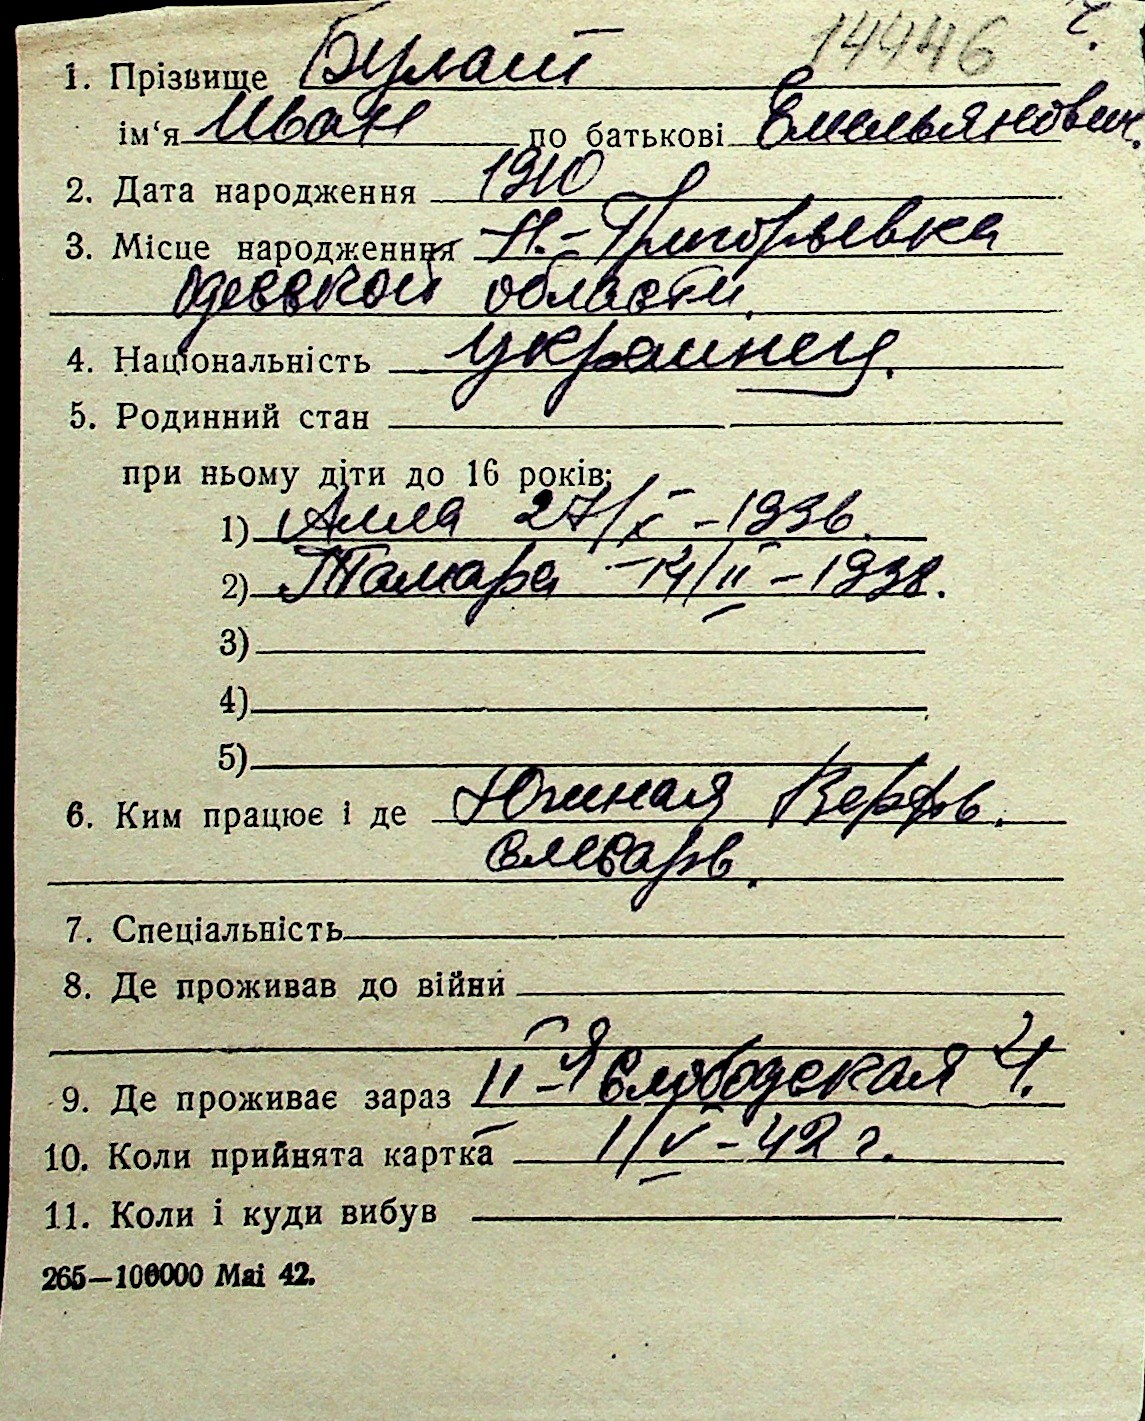 14446 ч.
1. Прізвище Булат
ім‘я Иван по батькові Емельянович.
2. Дата народження 1910
3. Місце народженння Н.-Григорьевка
Одесской области.
4. Національність украинец.
5. Родинний стан
при ньому діти до 16 років:
1) Алла 27/X -1936.
2) Тамара 14/II -1938.
3)
4)
5)
6. Ким працює і де Южная Верфь.
слесарь.
7. Спеціальність
8. Де проживав до війни
9. Де проживає зараз II-я Слободская 4.
10. Коли прийнята картка 1/V-42 г.
11. Коли і куди вибув
265—100000 Mai 42.